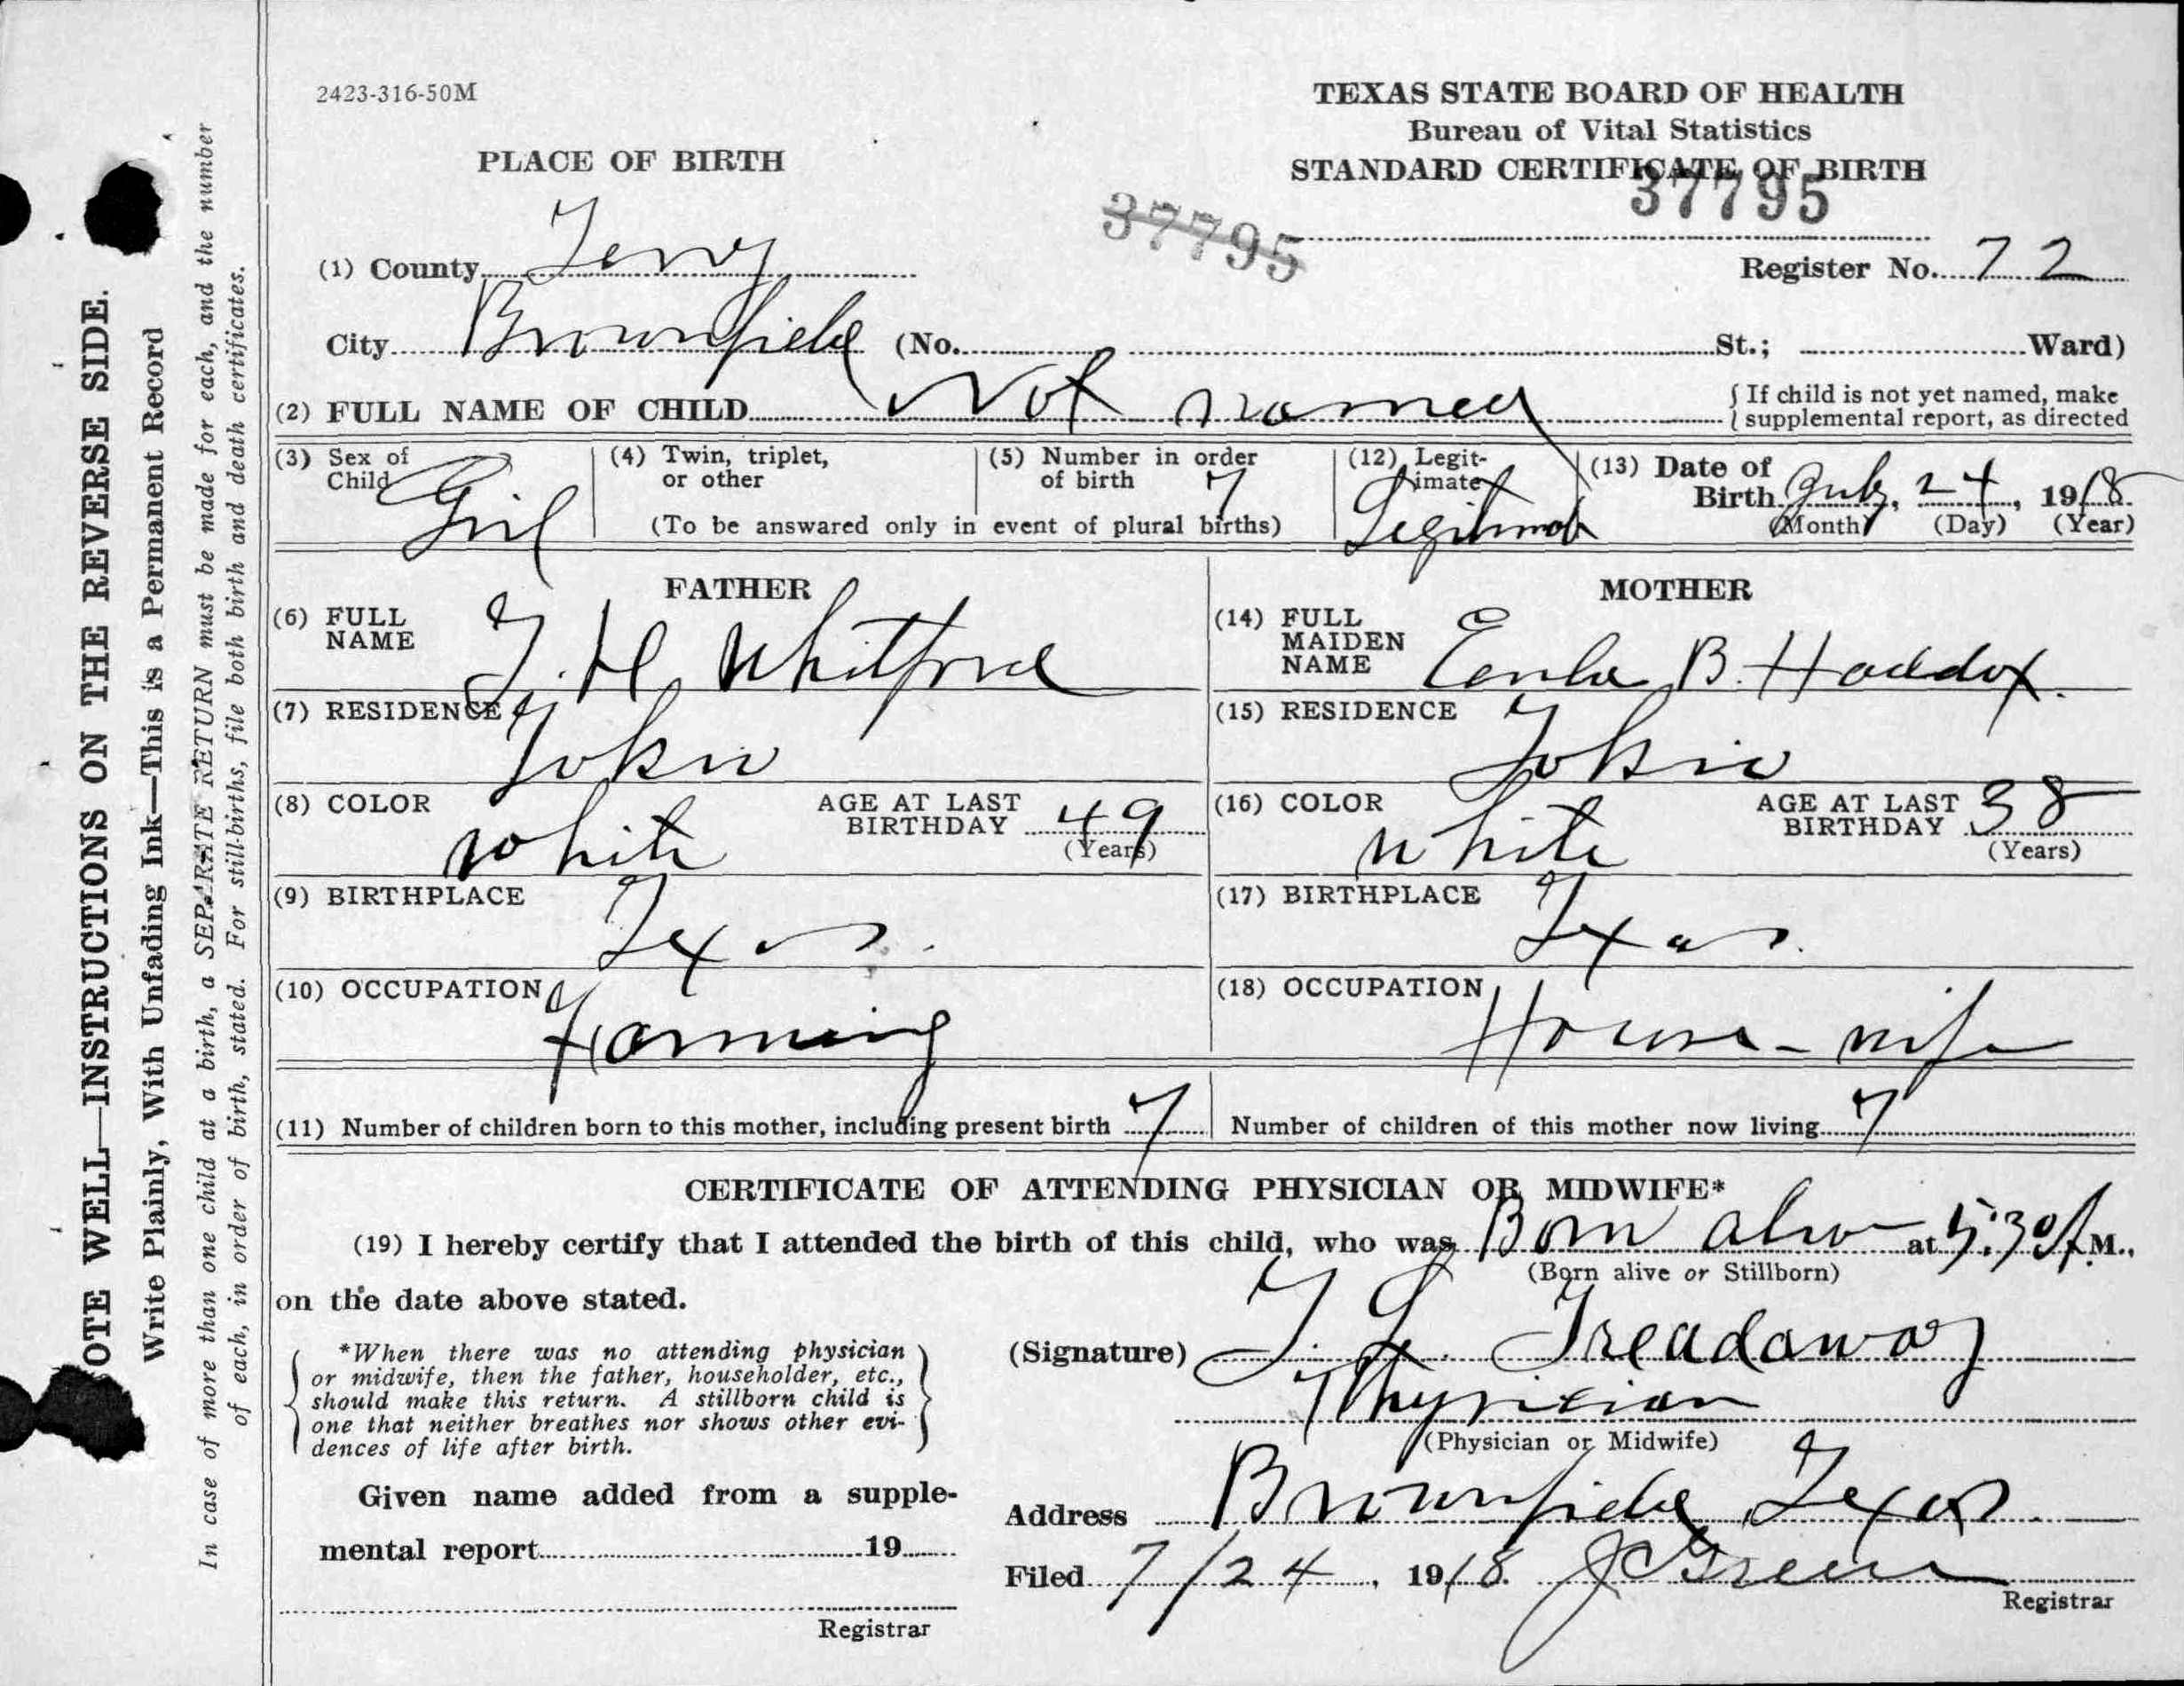 2423-316-50M
TEXAS STATE BOARD OF HEALTH
Bureau of Vital Statistics
STANDARD CERTIFICATE OF BIRTH
PLACE OF BIRTH
37795
37795
(1) County Terry
Register No. 72
City Brownfield (No. St.; Ward)
(2) FULL NAME OF CHILD Not named
{ If child is not yet named, make
{ supplemental report, as directed
(3) Sex of Child Girl
(4) Twin, triplet, or other
(5) Number in order of birth 7
(To be answared only in event of plural births)
(12) Legitimate Legitimate
(13) Date of Birth July, 24, 1918
(Month) (Day) (Year)
FATHER
(6) FULL NAME T. H Whitford
(7) RESIDENCE Tokio
(8) COLOR White
AGE AT LAST BIRTHDAY 49
(Years)
(9) BIRTHPLACE Texas.
(10) OCCUPATION Farming
MOTHER
(14) FULL MAIDEN NAME B. Haddox.
(15) RESIDENCE Tokio
(16) COLOR White
AGE AT LAST BIRTHDAY 38
(Years)
(17) BIRTHPLACE Texas.
(18) OCCUPATION House-wife
(11) Number of children born to this mother, including present birth 7
Number of children of this mother now living 7
CERTIFICATE OF ATTENDING PHYSICIAN OR MIDWIFE*
(19) I hereby certify that I attended the birth of this child, who was Born alive at 5:30 A.M.,
(Born alive or Stillborn)
on the date above stated.
*When there was no attending physician
or midwife, then the father, householder, etc.,
should make this return. A stillborn child is
one that neither breathes nor shows other evi-
dences of life after birth.
(Signature) T. L. Treadaway
Physician
(Physician or Midwife)
Given name added from a supple-
mental report 19
Registrar
Address Brownfield, Texas.
Filed 7/24, 1918. J C Green
Registrar
OTE WELL—INSTRUCTIONS ON THE REVERSE SIDE.
Write Plainly, With Unfading Ink—This is a Permanent Record
In case of more than one child at a birth, a SEPARATE RETURN must be made for each, and the number
of each, in order of birth, stated. For still-births, file both birth and death certificates.